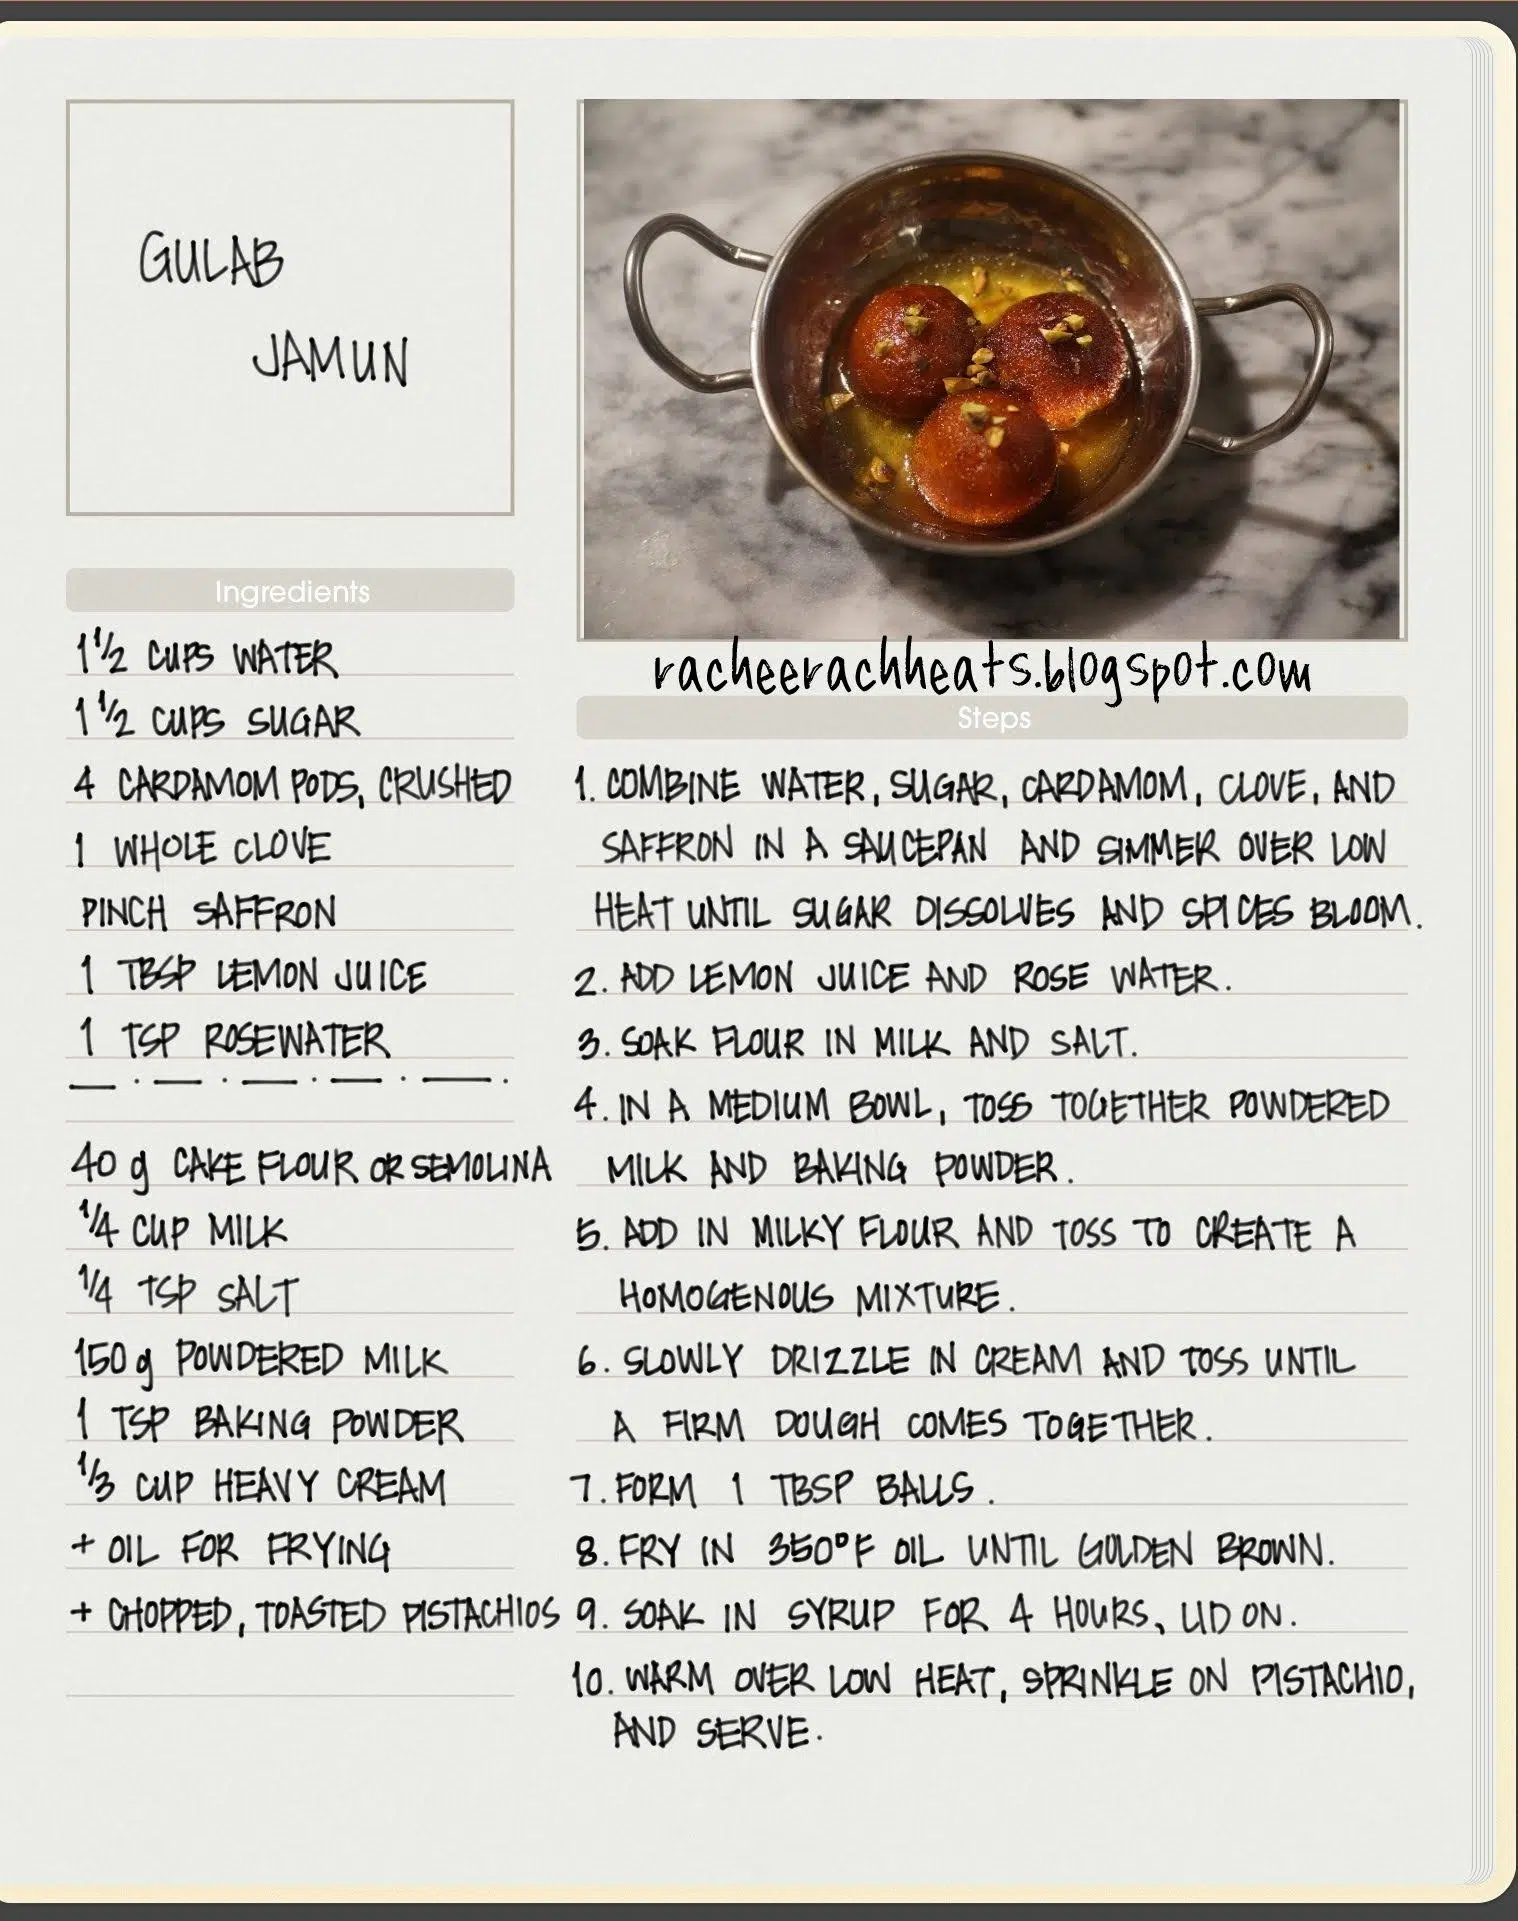 GULAB
JAMUN
Ingredients
1 1/2 CUPS WATER
1 1/2 CUPS SUGAR
4 CARDAMOM PODS, CRUSHED
1 WHOLE CLOVE
PINCH SAFFRON
1 TBSP LEMON JUICE
1 TSP ROSEWATER
40 g CAKE FLOUR OR SEMOLINA
1/4 CUP MILK
1/4 TSP SALT
150 g POWDERED MILK
1 TSP BAKING POWDER
1/3 CUP HEAVY CREAM
+ OIL FOR FRYING
+ CHOPPED, TOASTED PISTACHIOS
racheerachheats.blogspot.com
Steps
1. COMBINE WATER, SUGAR, CARDAMOM, CLOVE, AND
SAFFRON IN A SAUCEPAN AND SIMMER OVER LOW
HEAT UNTIL SUGAR DISSOLVES AND SPICES BLOOM.
2. ADD LEMON JUICE AND ROSE WATER.
3. SOAK FLOUR IN MILK AND SALT.
4. IN A MEDIUM BOWL, TOSS TOGETHER POWDERED
MILK AND BAKING POWDER.
5. ADD IN MILKY FLOUR AND TOSS TO CREATE A
HOMOGENOUS MIXTURE.
6. SLOWLY DRIZZLE IN CREAM AND TOSS UNTIL
A FIRM DOUGH COMES TOGETHER.
7. FORM 1 TBSP BALLS.
8. FRY IN 350°F OIL UNTIL GOLDEN BROWN.
9. SOAK IN SYRUP FOR 4 HOURS, LID ON.
10. WARM OVER LOW HEAT, SPRINKLE ON PISTACHIO,
AND SERVE.